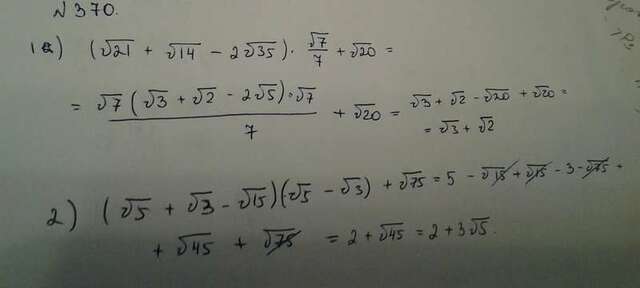 №370.
1а) (√21 + √14 - 2√35) · √7/7 + √20 =
= √7(√3 + √2 - 2√5)·√7/7 + √20 = √3 + √2 - √20 + √20 =
= √3 + √2
2) (√5 + √3 - √15)(√5 - √3) + √75 = 5 - √15 + √15 - 3 - √75 +
+ √45 + √75 = 2 + √45 = 2 + 3√5.